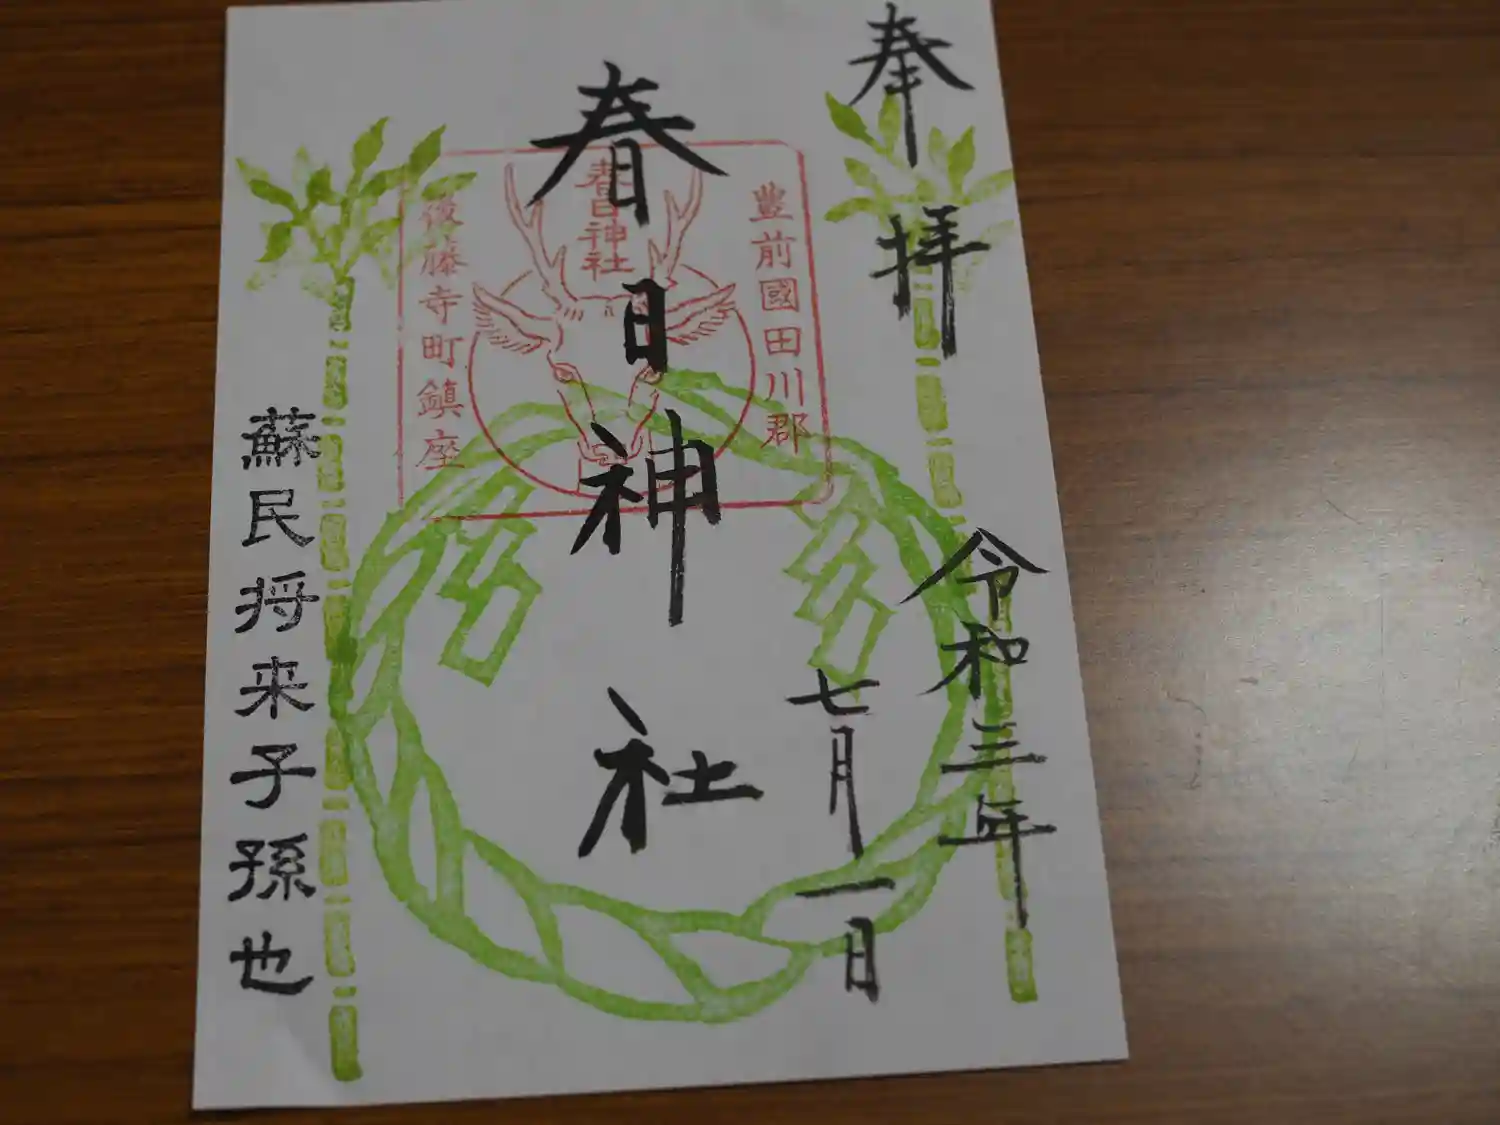 奉拝
令和三年
七月一日
豊前國田川郡
春日神社
春日神社
後藤寺町鎮座
蘇民将来子孫也